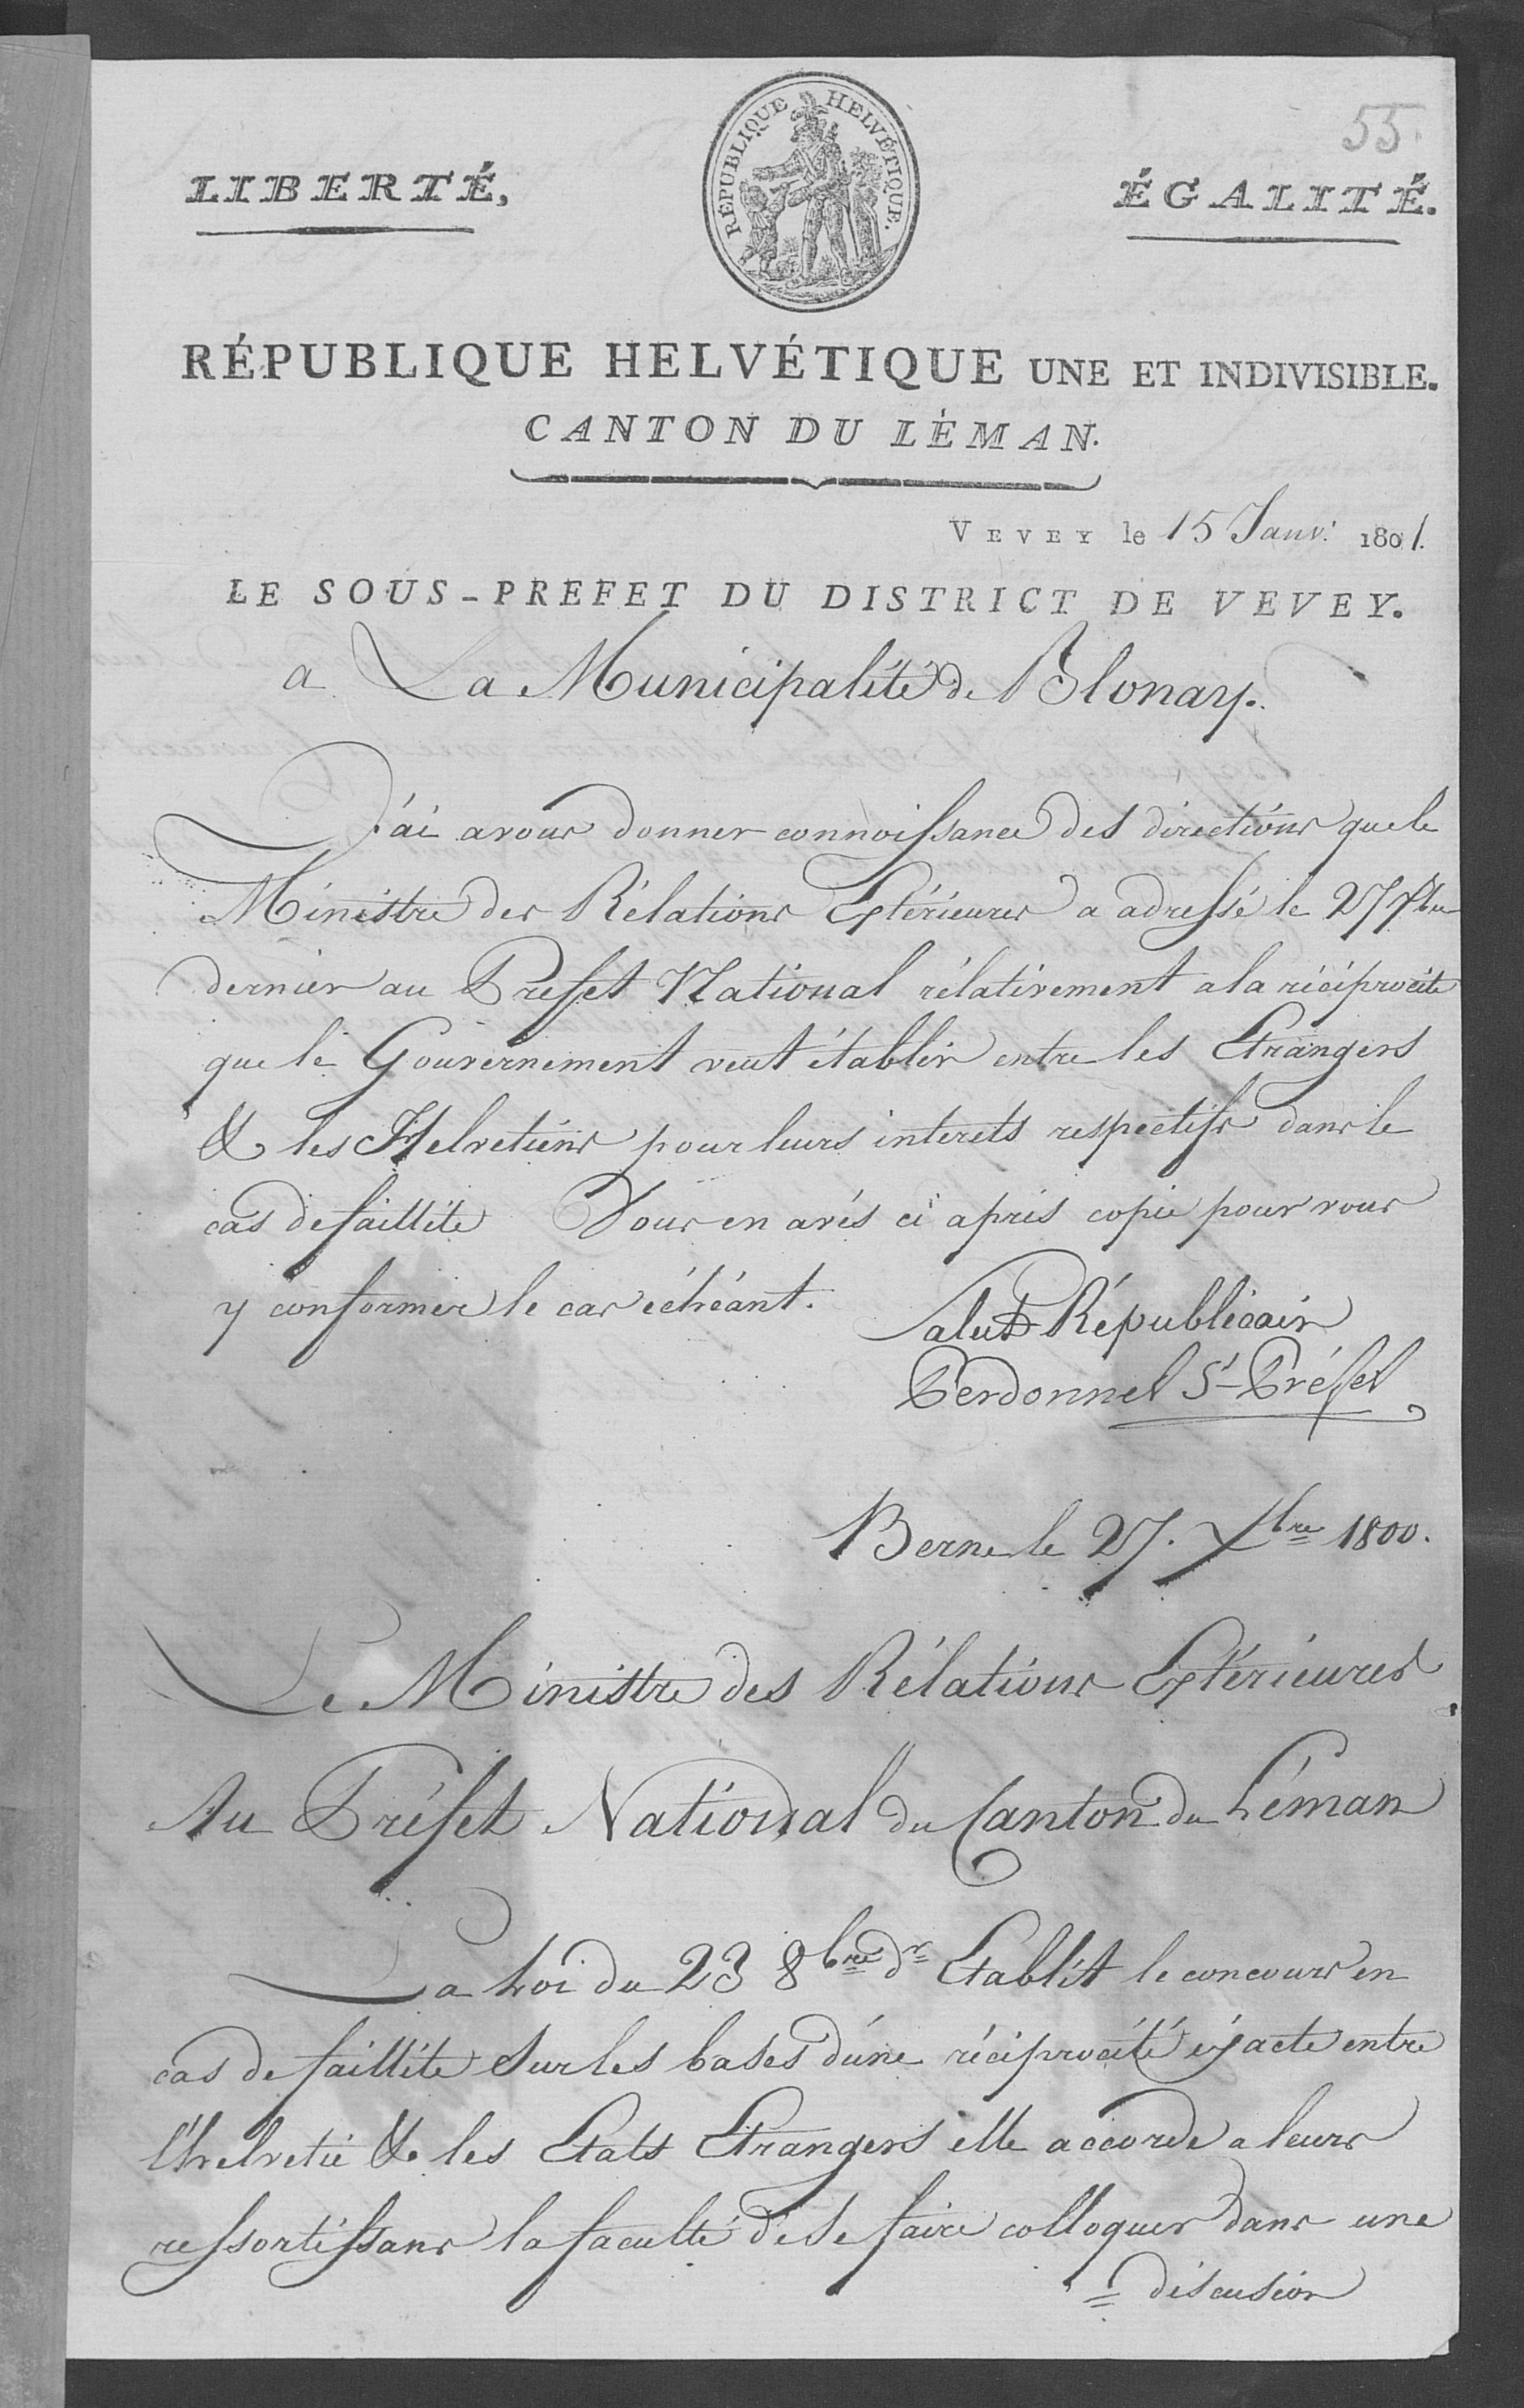 55.
LIBERTÉ,
RÉPUBLIQUE HELVÉTIQUE.
ÉGALITÉ.
RÉPUBLIQUE HELVÉTIQUE UNE ET INDIVISIBLE.
CANTON DU LÉMAN.
VEVEY le 15 Janv: 1801.
LE SOUS-PREFET DU DISTRICT DE VEVEY.
a La Municipalité de Blonay.
J'ai a vous donner connoissance des directions que le
Ministre des Rélations Extérieures a adressé le 27 Xbre
dernier au Prefet National rélativement a la réciprocité
que le Gouvernement veut établir entre les Etrangers
& les Helvetiens pour leurs interets respectifs dans le
cas de faillite Vous en avés ci après copie pour vous
y conformer le cas échéant.
Salut Républicain
Perdonnet St Préfet
Berne le 27. Xbre 1800.
Le Ministre des Rélations Extérieures
Au Préfet National du Canton du Léman
La Loi du 23 8bre dr Etablit le concours en
cas de faillite sur les bases d'une réciprocité éxacte entre
l'helvetie & les Etats Etrangers elle accorde a leurs
ressortissans la faculté de se faire colloquer dans une
= discusion